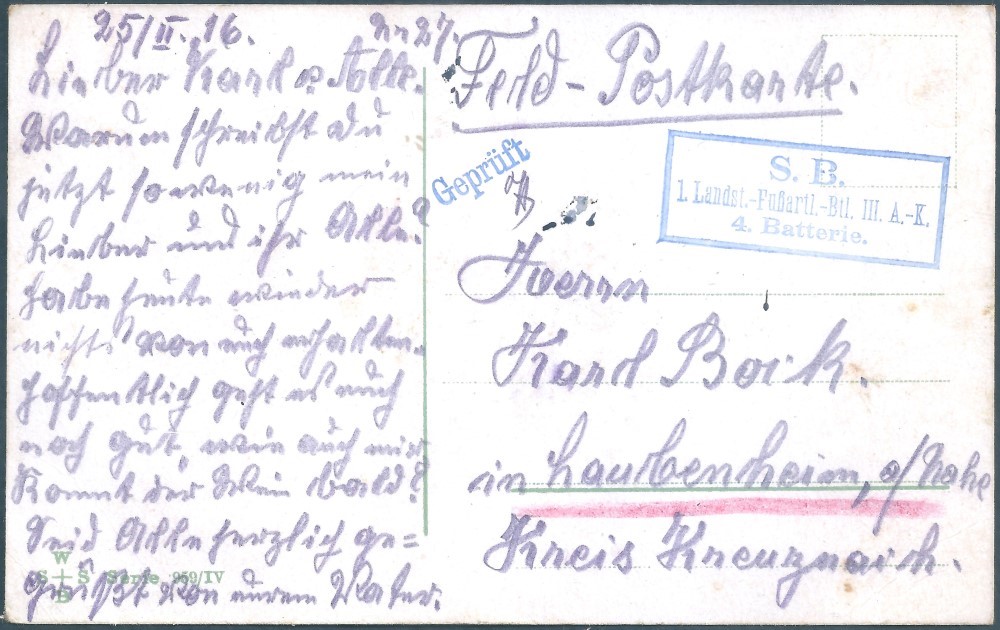 25/II. 16. No 27.
Lieber Karl u. Alle.
Warum schreibst du
jetzt so wenig mein
Lieber und ihr Alle?
habe heute wieder
nichts von euch erhalten.
hoffentlich geht es euch
noch gut, wie auch mir
Kommt der Wein bald?
Seid Alle herzlich ge=
grüßt von eurem Vater.
W
S + S
B
Serie 959/IV
Feld-Postkarte.
Geprüft
S. B.
1. Landst.-Fußartl.-Btl. III. A.-K.
4. Batterie.
Herrn
Karl Boik.
in Laubenheim, a/Nahe
Kreis Kreuznach.